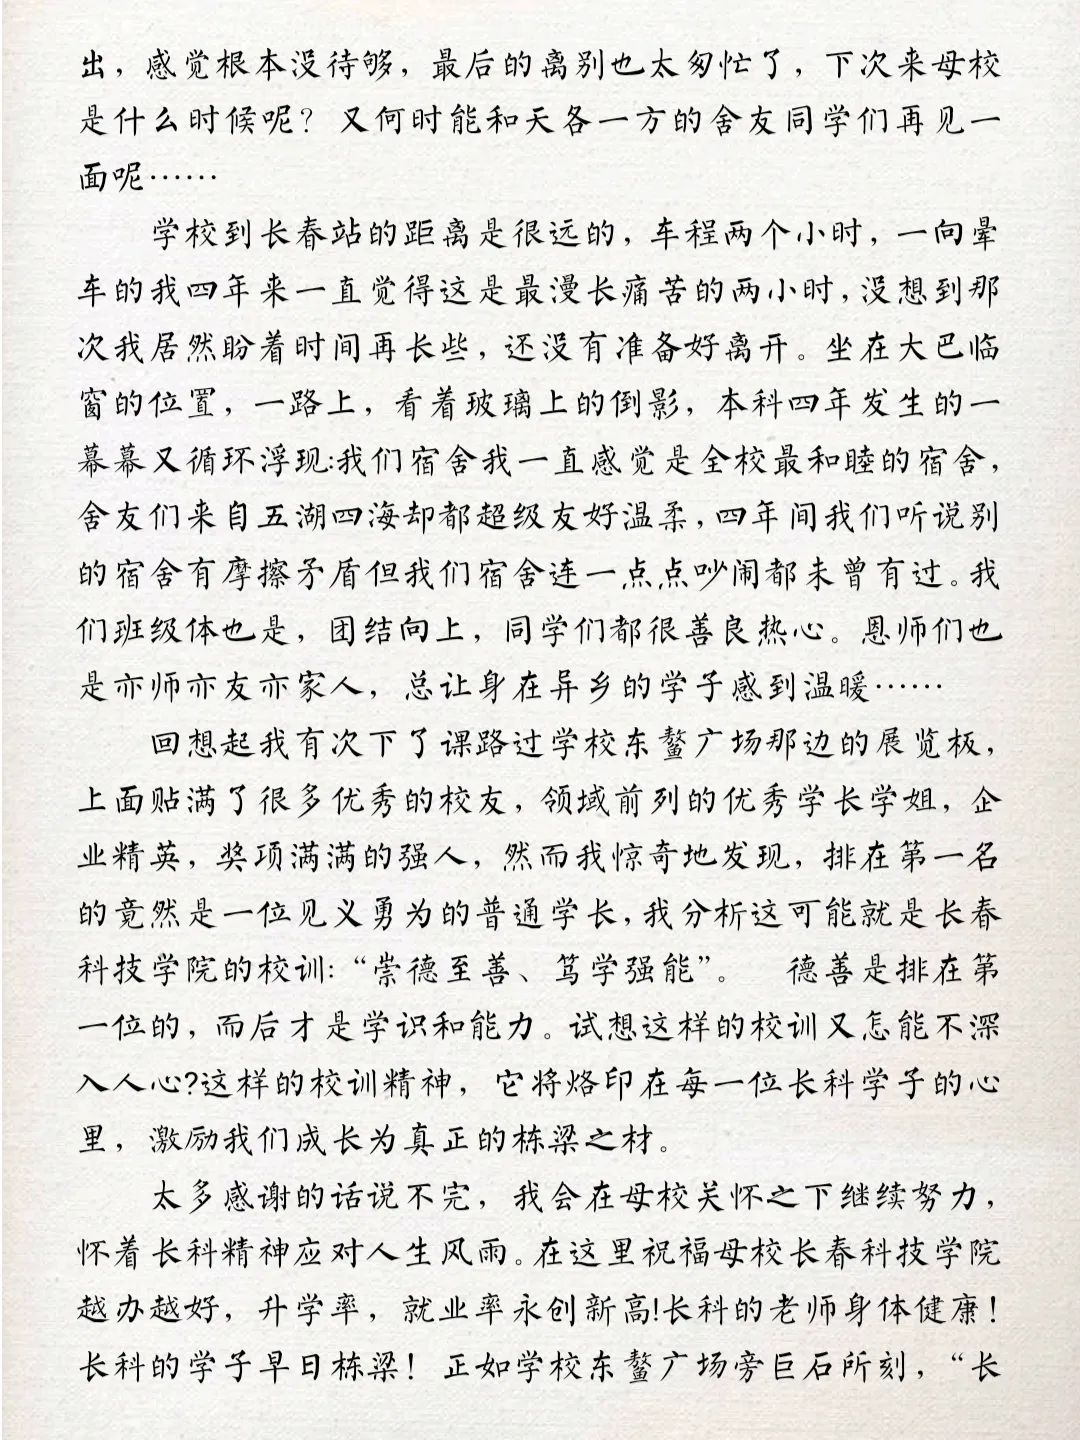 出，感觉根本没待够，最后的离别也太匆忙了，下次来母校
是什么时候呢？又何时能和天各一方的舍友同学们再见一
面呢……
学校到长春站的距离是很远的，车程两个小时，一向晕
车的我四年来一直觉得这是最漫长痛苦的两小时，没想到那
次我居然盼着时间再长些，还没有准备好离开。坐在大巴临
窗的位置，一路上，看着玻璃上的倒影，本科四年发生的一
幕幕又循环浮现:我们宿舍我一直感觉是全校最和睦的宿舍，
舍友们来自五湖四海却都超级友好温柔，四年间我们听说别
的宿舍有摩擦矛盾但我们宿舍连一点点吵闹都未曾有过。我
们班级体也是，团结向上，同学们都很善良热心。恩师们也
是亦师亦友亦家人，总让身在异乡的学子感到温暖……
回想起我有次下了课路过学校东鳌广场那边的展览板，
上面贴满了很多优秀的校友，领域前列的优秀学长学姐，企
业精英，奖项满满的强人，然而我惊奇地发现，排在第一名
的竟然是一位见义勇为的普通学长，我分析这可能就是长春
科技学院的校训:“崇德至善、笃学强能”。　德善是排在第
一位的，而后才是学识和能力。试想这样的校训又怎能不深
入人心?这样的校训精神，它将烙印在每一位长科学子的心
里，激励我们成长为真正的栋梁之材。
太多感谢的话说不完，我会在母校关怀之下继续努力，
怀着长科精神应对人生风雨。在这里祝福母校长春科技学院
越办越好，升学率，就业率永创新高!长科的老师身体健康！
长科的学子早日栋梁！正如学校东鳌广场旁巨石所刻，“长